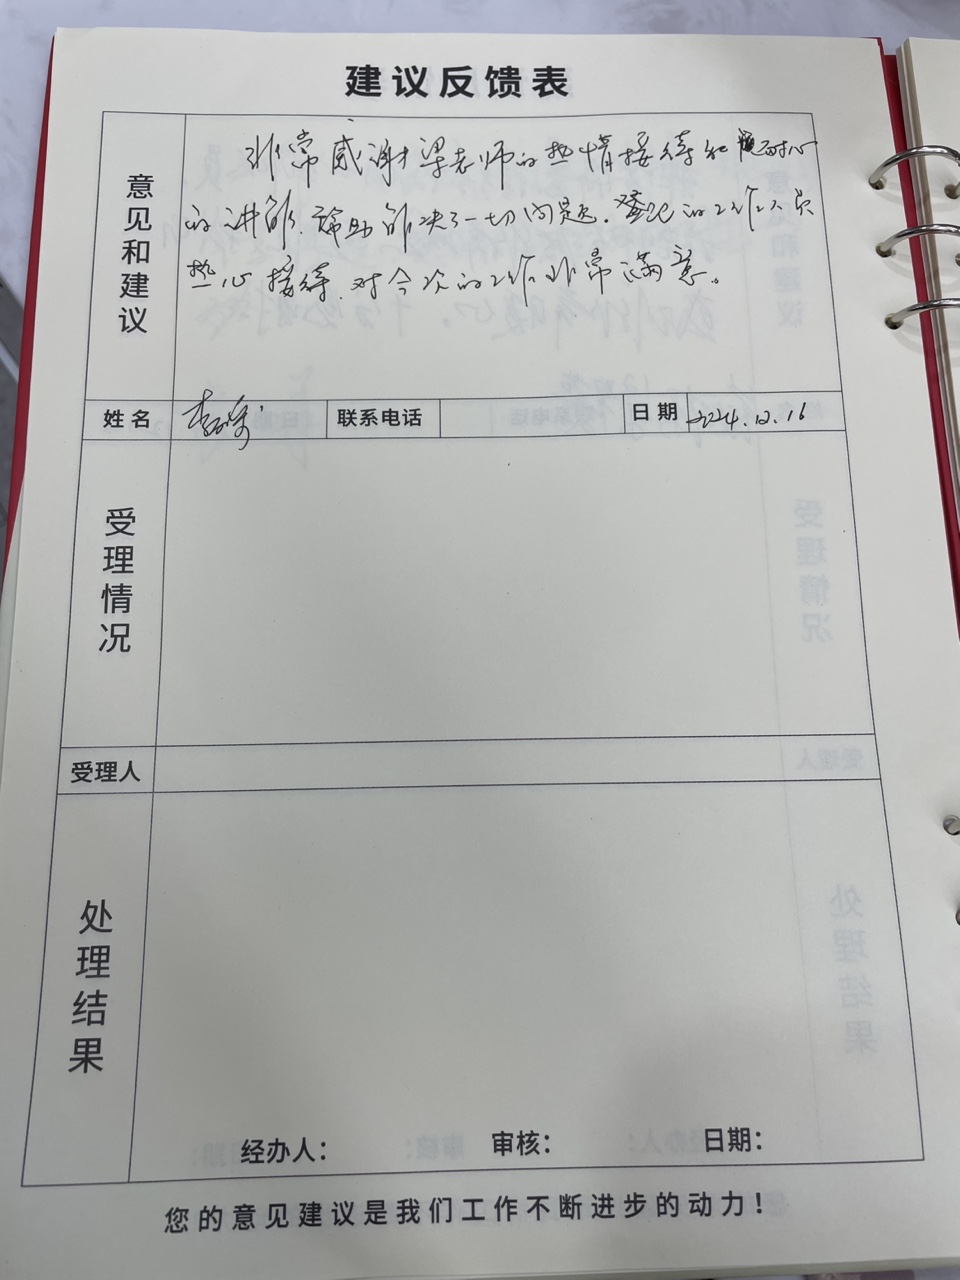 建议反馈表
意见和建议
非常感谢梁老师的热情接待和耐心
的讲解,帮助解决了一切问题。登记的工作人员
热心接待,对今次的工作非常满意。
姓名 李 联系电话 日期 2024.12.16
受理情况
受理人
处理结果
经办人: 审核: 日期:
您的意见建议是我们工作不断进步的动力!